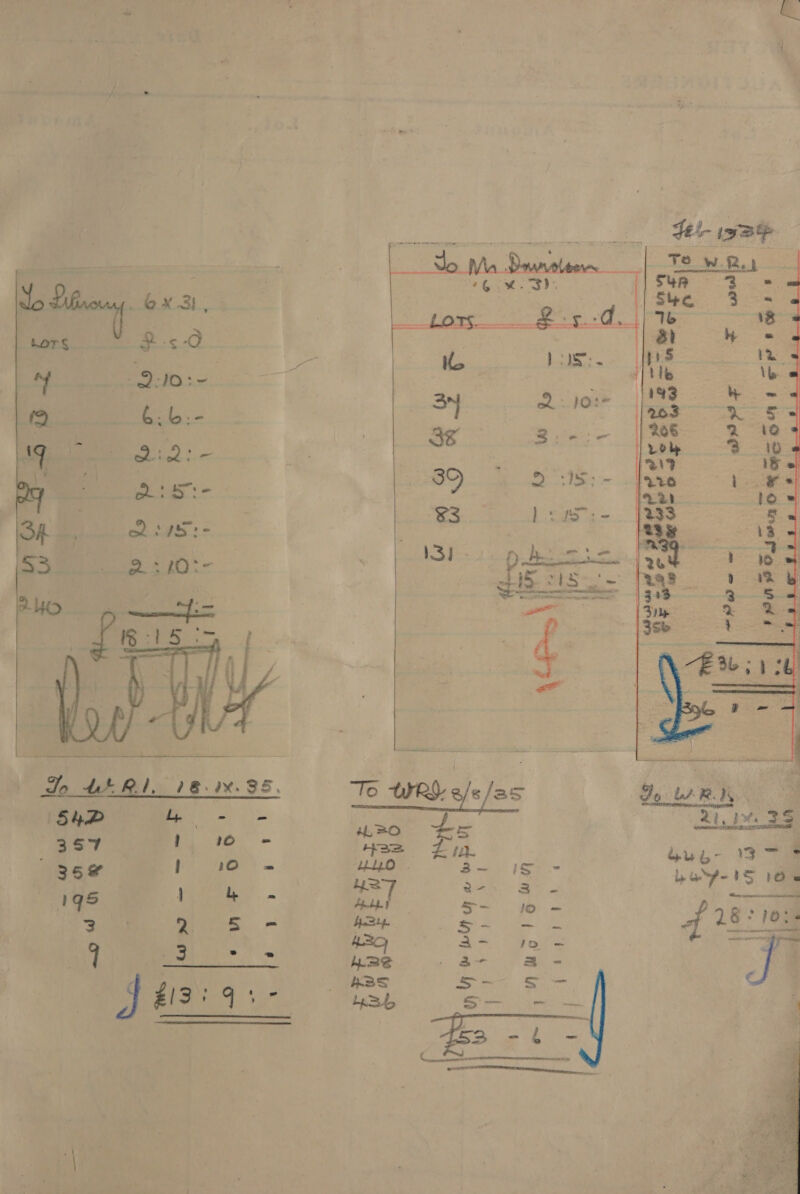 To Library. 6 X 31,
LOTS £ s d
4 2:10:-
12 6:6:-
19 2:2:-
29 2:5:-
34 2:15:-
53 2:10:-
240
£18:15:-
To Mr
(6.X.31).
LOTS £ s. d.
16 1:15:-
34 2:10:-
38 3:-:-
39 2:15:-
83 1:15:-
131
£15:15:-
Feb 1934
To W.R.I
54A 3 - -
54C 3 - -
76 18 -
81 4 - -
115 12 -
116 16 -
193 4 - -
203 2 5 -
206 2 10 -
204 3 10 -
217 18 -
220 1 8 -
221 10 -
233 5 -
238 13 -
239 7 -
264 1 10 -
298 12 6
313 3 5 -
314 2 2 -
356
£36:1:6
To W.R.I. 18.IX.35.
54D 4 - -
357 1 10 -
358 1 10 -
195 1 4 -
3 2 5 -
9 3 - -
£13:9:-
To WRI
420 £5
422 £12
440 3 - 15 -
427 2 - 3 -
441 5 - 10 -
424 5 - - -
429 2 - 10 -
428 2 - 2 -
425 5 - 5 -
426 5 - - -
£53 - 6 -
To W.R.I.
21.IX.35
446 - 13 - -
447 - 15 10 -
£28:10:-